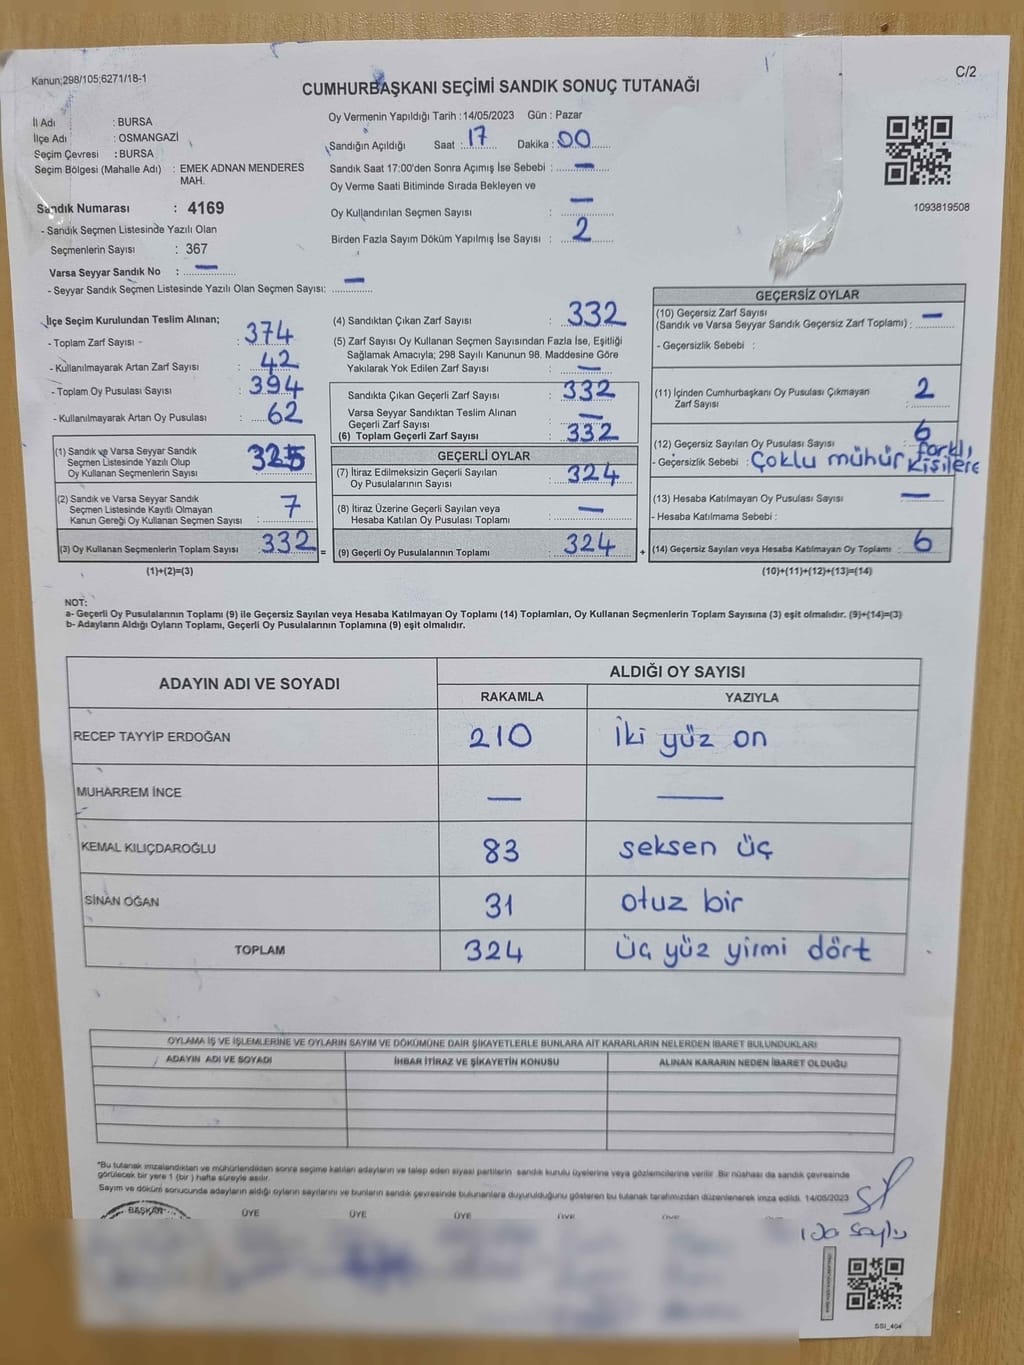 Kanun;298/105;6271/18-1
C/2
CUMHURBAŞKANI SEÇİMİ SANDIK SONUÇ TUTANAĞI
İl Adı : BURSA
İlçe Adı : OSMANGAZİ
Seçim Çevresi : BURSA
Seçim Bölgesi (Mahalle Adı) : EMEK ADNAN MENDERES
MAH.
Sandık Numarası : 4169
- Sandık Seçmen Listesinde Yazılı Olan
Seçmenlerin Sayısı : 367
Varsa Seyyar Sandık No : —
- Seyyar Sandık Seçmen Listesinde Yazılı Olan Seçmen Sayısı: —
Oy Vermenin Yapıldığı Tarih :14/05/2023 Gün : Pazar
Sandığın Açıldığı Saat : 17 Dakika : 00
Sandık Saat 17:00'den Sonra Açımış İse Sebebi : —
Oy Verme Saati Bitiminde Sırada Bekleyen ve
Oy Kullandırılan Seçmen Sayısı : —
Birden Fazla Sayım Döküm Yapılmış İse Sayısı : 2
1093819508
İlçe Seçim Kurulundan Teslim Alınan;
- Toplam Zarf Sayısı - : 374
- Kullanılmayarak Artan Zarf Sayısı : 42
- Toplam Oy Pusulası Sayısı : 394
- Kullanılmayarak Artan Oy Pusulası : 62
(1) Sandık ve Varsa Seyyar Sandık
Seçmen Listesinde Yazılı Olup
Oy Kullanan Seçmenlerin Sayısı : 325
(2) Sandık ve Varsa Seyyar Sandık
Seçmen Listesinde Kayıtlı Olmayan
Kanun Gereği Oy Kullanan Seçmen Sayısı : 7
(3) Oy Kullanan Seçmenlerin Toplam Sayısı : 332
(1)+(2)=(3)
(4) Sandıktan Çıkan Zarf Sayısı : 332
(5) Zarf Sayısı Oy Kullanan Seçmen Sayısından Fazla İse, Eşitliği
Sağlamak Amacıyla; 298 Sayılı Kanunun 98. Maddesine Göre
Yakılarak Yok Edilen Zarf Sayısı : —
Sandıkta Çıkan Geçerli Zarf Sayısı : 332
Varsa Seyyar Sandıktan Teslim Alınan
Geçerli Zarf Sayısı : —
(6) Toplam Geçerli Zarf Sayısı : 332
GEÇERLİ OYLAR
(7) İtiraz Edilmeksizin Geçerli Sayılan
Oy Pusulalarının Sayısı : 324
(8) İtiraz Üzerine Geçerli Sayılan veya
Hesaba Katılan Oy Pusulası Toplamı : —
= (9) Geçerli Oy Pusulalarının Toplamı : 324
GEÇERSİZ OYLAR
(10) Geçersiz Zarf Sayısı
(Sandık ve Varsa Seyyar Sandık Geçersiz Zarf Toplamı) : —
- Geçersizlik Sebebi :
(11) İçinden Cumhurbaşkanı Oy Pusulası Çıkmayan
Zarf Sayısı : 2
(12) Geçersiz Sayılan Oy Pusulası Sayısı : 6
- Geçersizlik Sebebi : Çoklu mühür farklı,
kişilere
(13) Hesaba Katılmayan Oy Pusulası Sayısı : —
- Hesaba Katılmama Sebebi :
+ (14) Geçersiz Sayılan veya Hesaba Katılmayan Oy Toplamı : 6
(10)+(11)+(12)+(13)=(14)
NOT:
a- Geçerli Oy Pusulalarının Toplamı (9) ile Geçersiz Sayılan veya Hesaba Katılmayan Oy Toplamı (14) Toplamları, Oy Kullanan Seçmenlerin Toplam Sayısına (3) eşit olmalıdır. (9)+(14)=(3)
b- Adayların Aldığı Oyların Toplamı, Geçerli Oy Pusulalarının Toplamına (9) eşit olmalıdır.
ADAYIN ADI VE SOYADI
ALDIĞI OY SAYISI
RAKAMLA YAZIYLA
RECEP TAYYİP ERDOĞAN 210 İki yüz on
MUHARREM İNCE — —
KEMAL KILIÇDAROĞLU 83 seksen üç
SİNAN OĞAN 31 otuz bir
TOPLAM 324 Üç yüz yirmi dört
OYLAMA İŞ VE İŞLEMLERİNE VE OYLARIN SAYIM VE DÖKÜMÜNE DAİR ŞİKAYETLERLE BUNLARA AİT KARARLARIN NELERDEN İBARET BULUNDUKLARI
ADAYIN ADI VE SOYADI İHBAR İTİRAZ VE ŞİKAYETİN KONUSU ALINAN KARARIN NEDEN İBARET OLDUĞU
*Bu tutanak imzalandıktan ve mühürlendikten sonra seçime katılan adayların ve talep eden siyasi partilerin sandık kurulu üyelerine veya gözlemcilerine verilir. Bir nüshası da sandık çevresinde
görülecek bir yere 1 (bir) hafta süreyle asılır.
Sayım ve döküm sonucunda adayların aldığı oyların sayılarını ve bunların sandık çevresinde bulunanlara duyurulduğunu gösteren bu tutanak tarafımızdan düzenlenerek imza edildi. 14/05/2023
BAŞKAN ÜYE ÜYE ÜYE ÜYE ÜYE
SSI_404